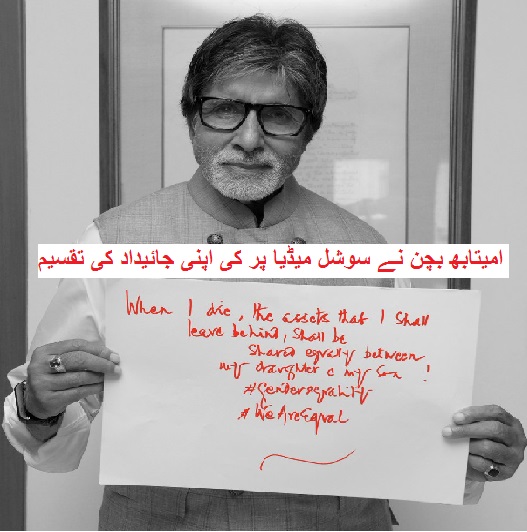 امیتابھ بچن نے سوشل میڈیا پر کی اپنی جائیداد کی تقسیم
When I die, the assets that I shall
leave behind, shall be
shared equally between
my daughter & my son !
#Genderequality
#WeAreEqual